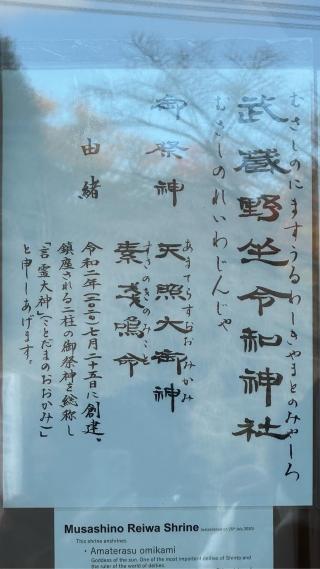 むさしのにますうるわしきやまとのみやしろ
武蔵野坐令和神社
むさしのれいわじんじゃ
御祭神
あまてらすおおみかみ
天照大御神
すさのをのみこと
素戔嗚命
由緒
令和二年(二〇二〇)七月二十五日に創建、
鎮座される二柱の御祭神を総称し
「言霊大神」(ことだまのおおかみ)」
と申しあげます。
Musashino Reiwa Shrine (established on 25th July, 2020)
This shrine enshrines
・Amaterasu omikami
Goddess of the sun. One of the most important deities of Shinto and
the ruler of the world of deities.